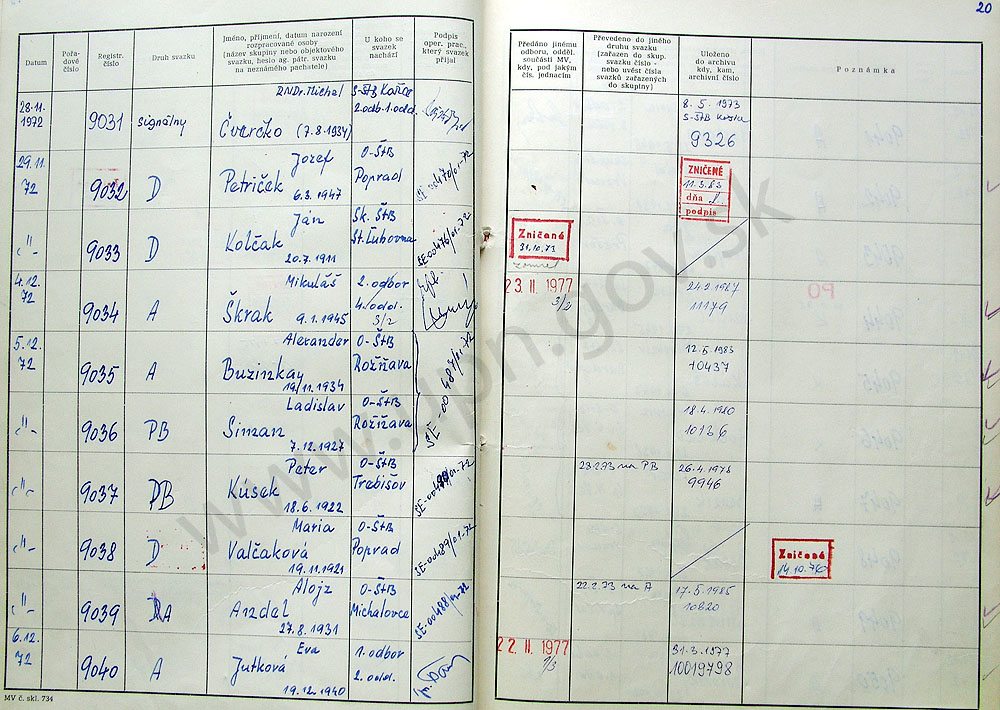 20
Datum
Pořadové číslo
Registr. číslo
Druh svazku
Jméno, příjmení, datum narození rozpracované osoby (název skupiny nebo objektového svazku, heslo ag. pátr. svazku na neznámého pachatele)
U koho se svazek nachází
Podpis oper. prac., který svazek přijal
Předáno jinému odboru, odděl. součásti MV, kdy, pod jakým čís. jednacím
Převedeno do jiného druhu svazku (zařazen do skup. svazku číslo - nebo uvést čísla svazků zařazených do skupiny)
Uloženo do archivu kdy, kam, archivní číslo
Poznámka
28.11. 1972
9031
signálny
RNDr. Michal
Čvarčko (7.8.1934)
S-ŠtB Košice
2.odb.1.odd.
8. 5. 1973
S-ŠtB Košice
9326
29.11. 72
9032
D
Jozef
Petriček
6.3.1947
O-ŠtB
Poprad
SE-00470/01-72
ZNIČENÉ
dňa
podpis
-"-
9033
D
Ján
Kolčak
20.7.1911
Sk. ŠtB
St. Ľubovňa
SE-00476/01-72
Zničené
31.10.73
4.12. 72
9034
A
Mikuláš
Škrak
9.1.1945
2. odbor
4. odd.
3/2
23. II. 1977
3/2
11179
PO
5.12. 72
9035
A
Alexander
Buzinkay
19.11.1934
O-ŠtB
Rožňava
SE-00487/01-72
12.5.1983
10437
-"-
9036
PB
Ladislav
Siman
7.12.1927
O-ŠtB
Rožňava
18.4.1980
10136
-"-
9037
PB
Peter
Kúsek
18.6.1922
O-ŠtB
Trebišov
23.2.93 na PB
26.4.1978
9946
-"-
9038
D
Maria
Valčaková
19.11.1921
O-ŠtB
Poprad
SE-00489/01-72
Zničené
-"-
9039
A
Alojz
Andel
27.8.1931
O-ŠtB
Michalovce
SE-00488/01-72
22.2.73 na A
17.5.1985
10820
6.12. 72
9040
A
Eva
Jutková
19.12.1940
1. odbor
2. odd.
22. II. 1977
31.3.1977
10019798
MV č. skl. 734
www.upn.gov.sk